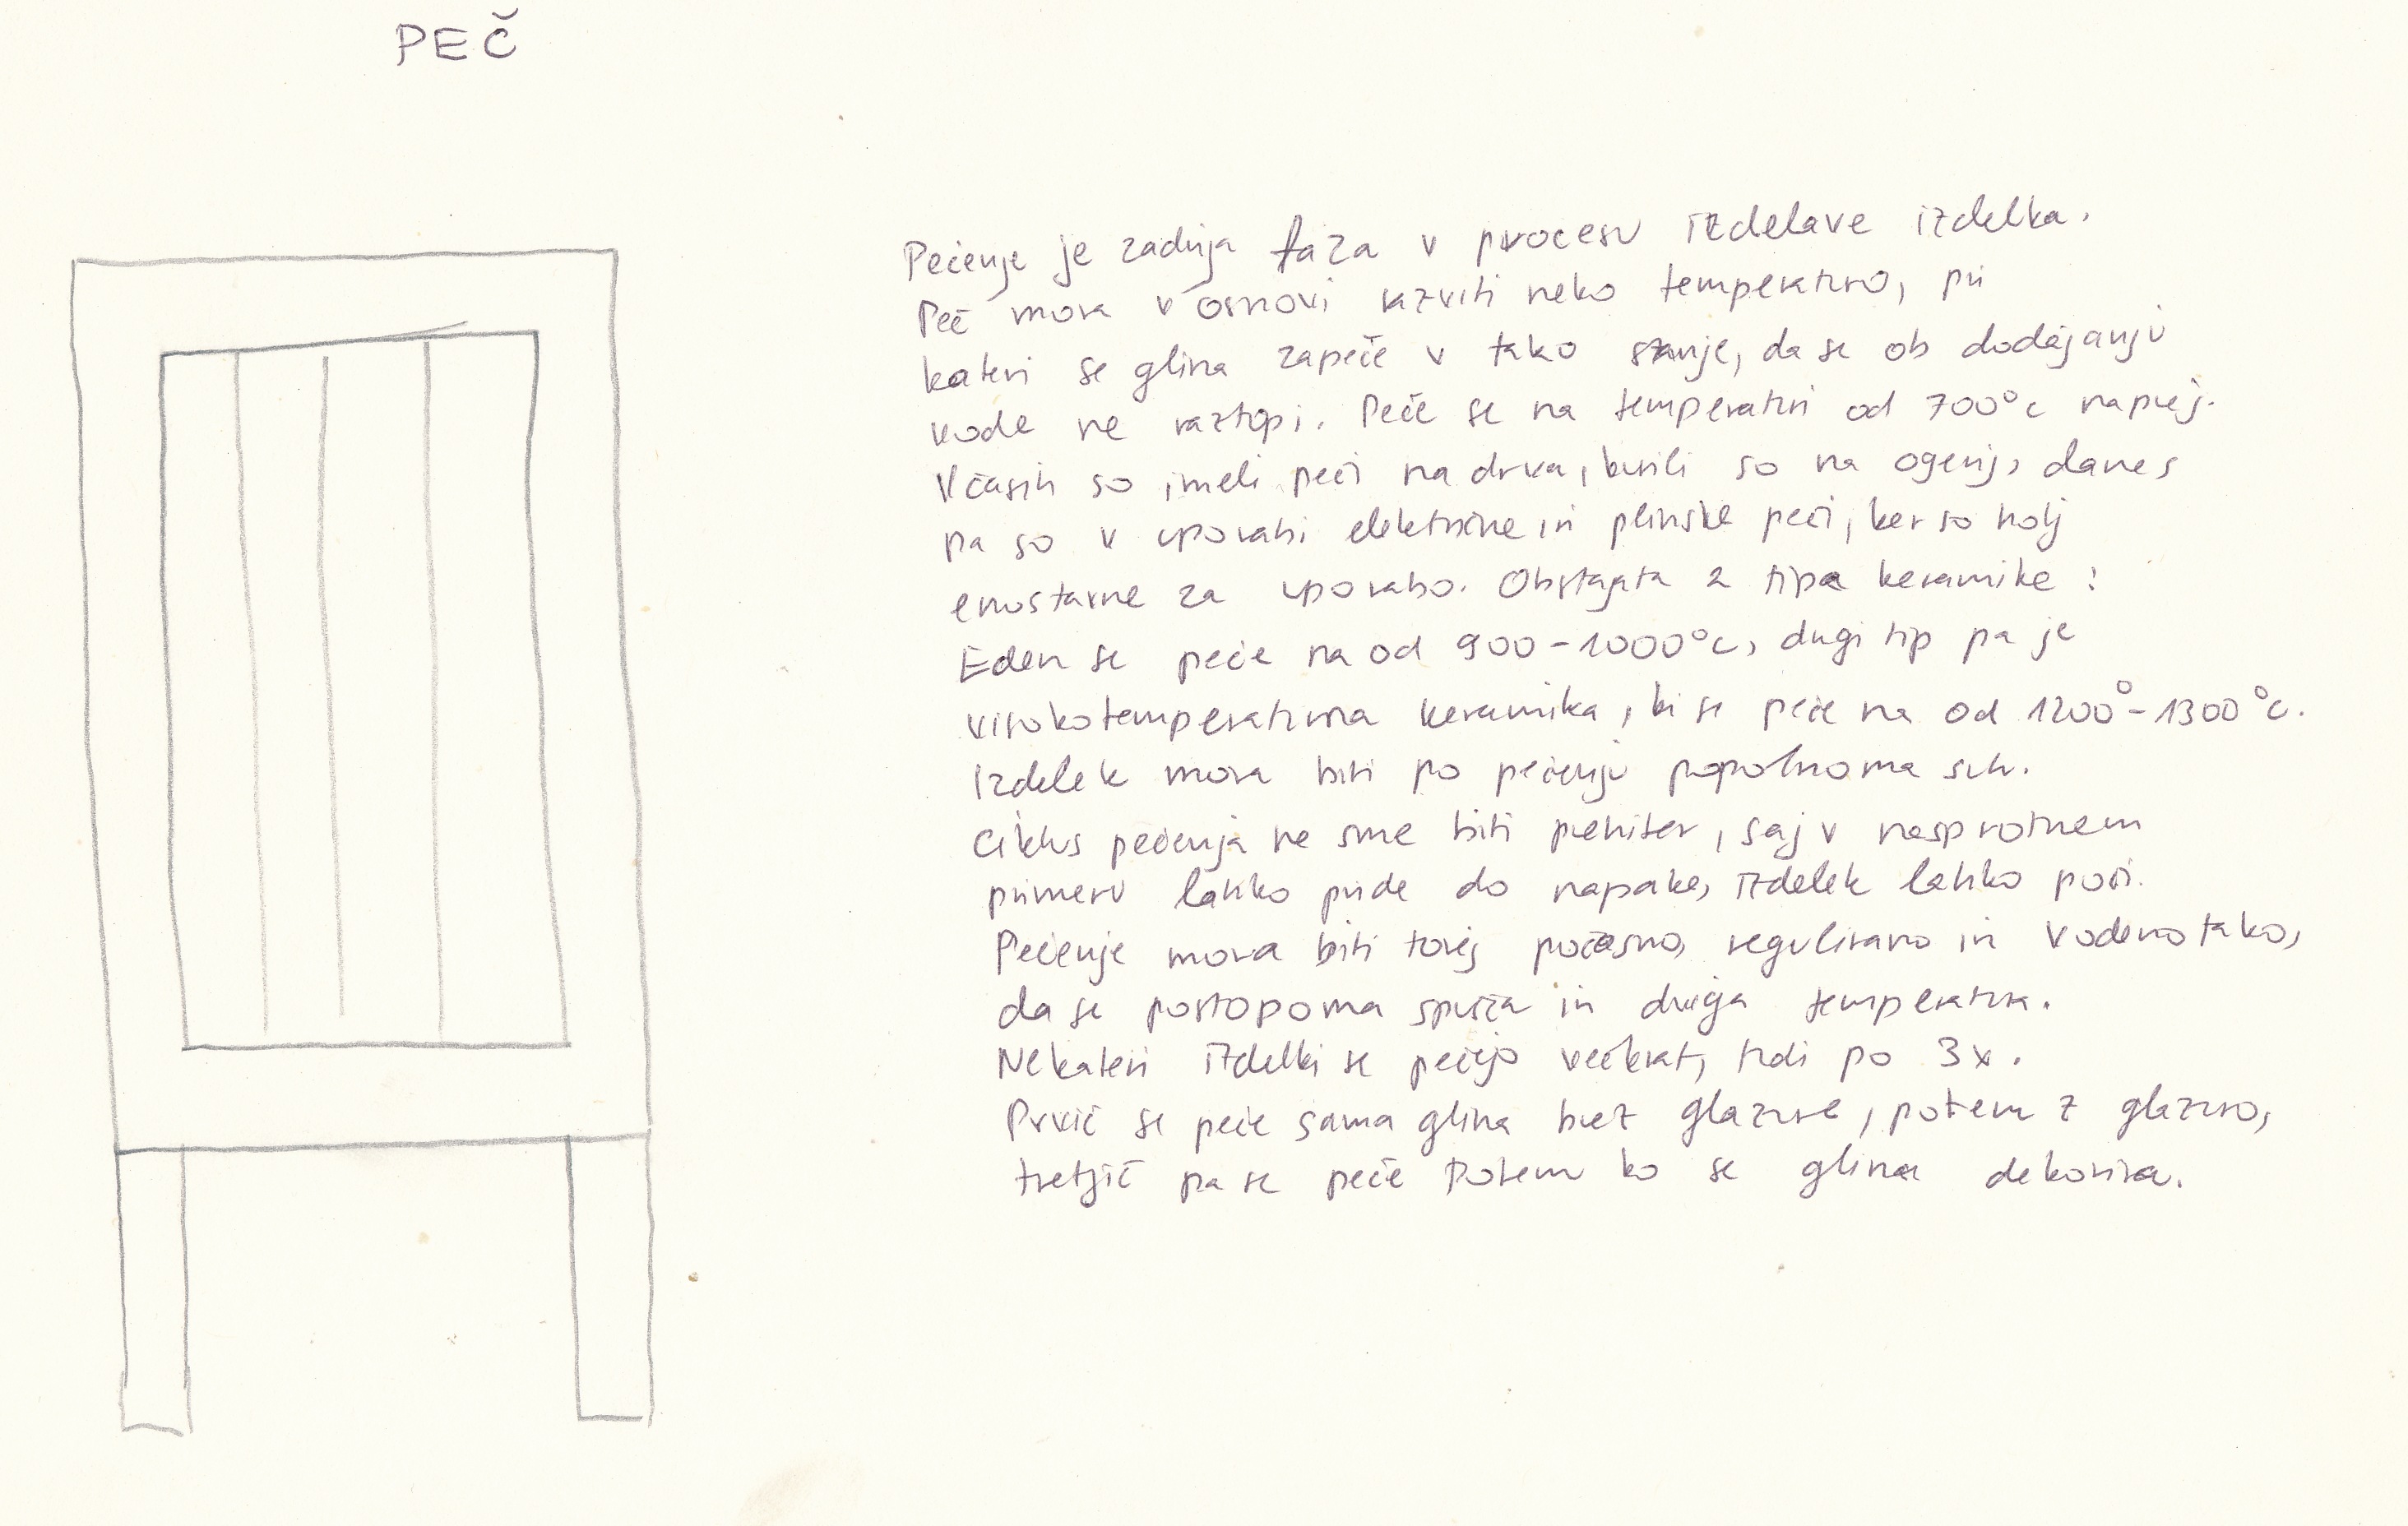 PEČ
Pečenje je zadnja faza v procesu izdelave izdelka.
Peč mora v osnovi razviti neko temperaturo, pri
kateri se glina zapeče v tako stanje, da se ob dodajanju
vode ne raztopi. Peče se na temperaturi od 700°C naprej.
Včasih so imeli peči na drva, kurili so na ogenj, danes
pa so v uporabi električne in plinske peči, ker so bolj
enostavne za uporabo. Obstajata 2 tipa keramike:
Eden se peče na od 900-1000°C, drugi tip pa je
visokotemperaturna keramika, ki se peče na od 1200°-1300°C.
Izdelek mora biti po pečenju popolnoma suh.
Ciklus pečenja ne sme biti prehiter, saj v nasprotnem
primeru lahko pride do napake, izdelek lahko poči.
Pečenje mora biti torej počasno, regulirano in vodeno tako,
da se postopoma spušča in dviga temperatura.
Nekateri izdelki se pečejo večkrat, tudi po 3x.
Prvič se peče sama glina brez glazure, potem z glazuro,
tretjič pa se peče potem ko se glina dekorira.